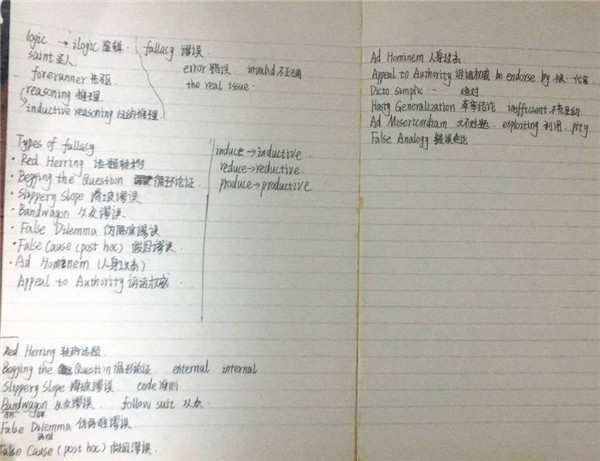 logic → ilogic 逻辑
saint 圣人
forerunner 先驱
reasoning 推理
inductive reasoning 归纳推理
fallacy 谬误
error 错误 invalid 不正确
the real issue.
Types of fallacy
· Red Herring 话题转移
· Begging the Question 循环论证
· Slippery Slope 滑坡谬误
· Bandwagon 从众谬误
· False Dilemma 伪两难谬误
· False Cause (post hoc) 假因谬误
· Ad Hominem (人身攻击)
Appeal to Authority 诉诸权威
induce → inductive
reduce → reductive.
produce → productive
Red Herring 转移话题
Begging the Question 循环论证. external internal
Slippery Slope 滑坡谬误. code 准则
Bandwagon 从众谬误. follow suit 从众
False Dilemma 伪两难谬误
False Cause (post hoc) 假因谬误.
Ad Hominem 人身攻击
Appeal to Authority 诉诸权威 be endorse by
Dicto simplic
Hasty Generalization 草率结论 inefficient 不充足的
Ad Misericordiam 文不对题. exploiting 利用. pity
False Analogy 错误类比